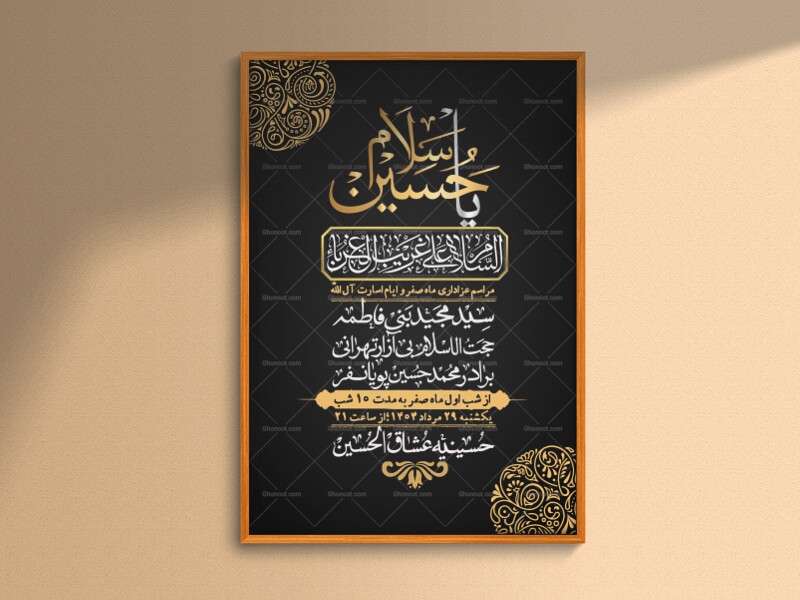 سلام
یا حسین
السلام علی غریب الغرباء
مراسم عزاداری ماه صفر و ایام اسارت آل الله
سید مجید بنی فاطمه
حجت الاسلام بی آزار تهرانی
برادر محمد حسین پویانفر
از شب اول ماه صفر به مدت ۱۵ شب
یکشنبه ۲۹ مرداد ۱۴۰۴؛ از ساعت ۲۱
حسینیه عشاق الحسین
Ghonoot.com